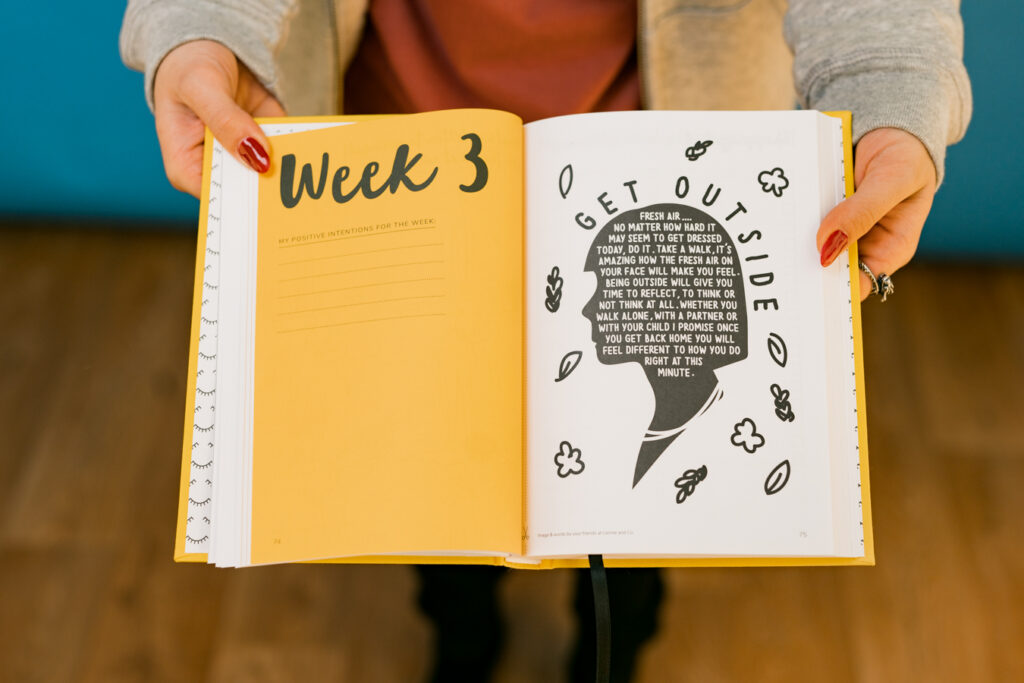 Week 3
MY POSITIVE INTENTIONS FOR THE WEEK:
74
GET OUTSIDE
FRESH AIR ....
NO MATTER HOW HARD IT
MAY SEEM TO GET DRESSED
TODAY, DO IT. TAKE A WALK, IT'S
AMAZING HOW THE FRESH AIR ON
YOUR FACE WILL MAKE YOU FEEL.
BEING OUTSIDE WILL GIVE YOU
TIME TO REFLECT, TO THINK OR
NOT THINK AT ALL. WHETHER YOU
WALK ALONE, WITH A PARTNER OR
WITH YOUR CHILD I PROMISE ONCE
YOU GET BACK HOME YOU WILL
FEEL DIFFERENT TO HOW YOU DO
RIGHT AT THIS
MINUTE.
Image & words by your friends at and Co.
75